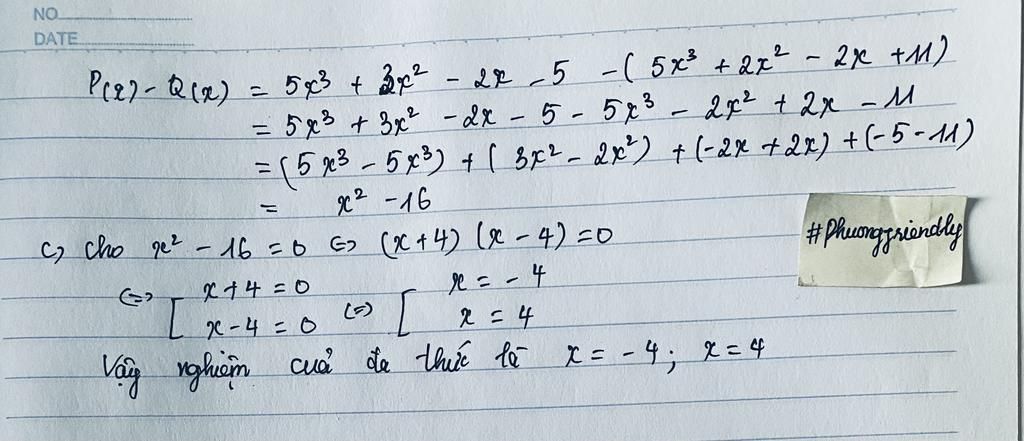 NO
DATE
P(x) - Q(x) = 5x³ + 3x² - 2x - 5 - ( 5x³ + 2x² - 2x + 11 )
= 5x³ + 3x² - 2x - 5 - 5x³ - 2x² + 2x - 11
= (5x³ - 5x³) + ( 3x² - 2x² ) + (-2x + 2x) + (-5 - 11)
= x² - 16
c, cho x² - 16 = 0 <=> (x+4) (x - 4) = 0
#Phuongfriendly
<=> [ x + 4 = 0 <=> [ x = - 4
x - 4 = 0 x = 4
Vậy nghiệm cuả đa thức là x = - 4; x = 4